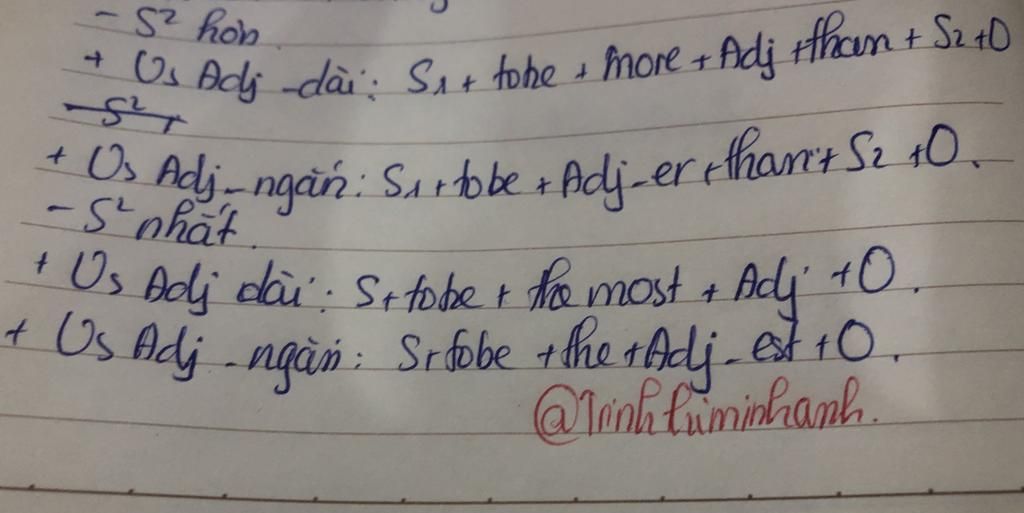 - S² hơn.
+ Vs Adj - dài: S1 + tobe + more + Adj + than + S2 + O
S²
+ Vs Adj - ngắn: S1 + tobe + Adj - er + than + S2 + O.
- S² nhất.
+ Vs Adj dài: S + tobe + the most + Adj + O.
+ Vs Adj - ngắn: S + tobe + the + Adj - est + O.